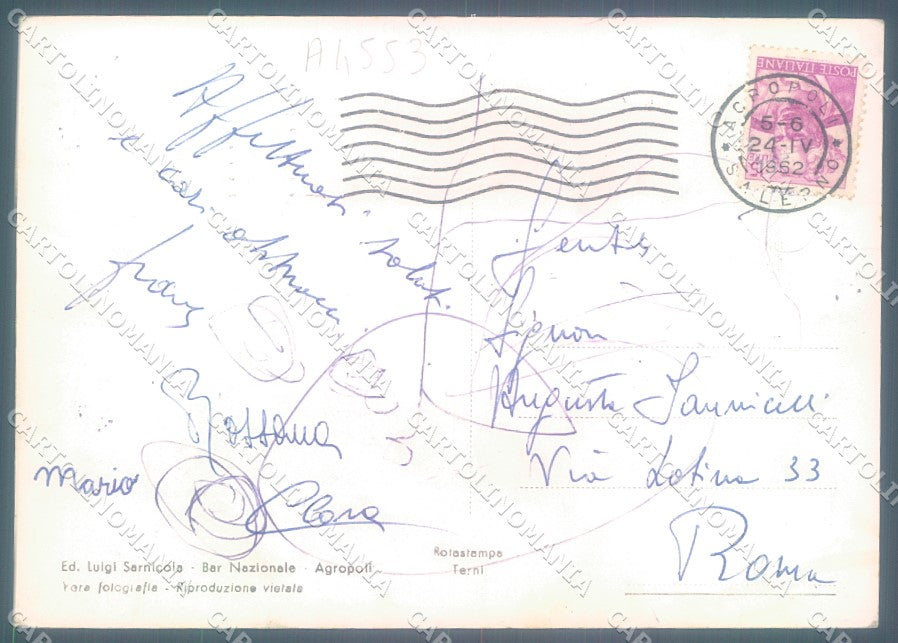 A4553
Affettuosi saluti
e cari
franz
Rossana
Mario
Clara
POSTE ITALIANE
AGROPOLI
5-6
24-IV
1962
SALERNO
Gent.
Signora
Augusta Iannicelli
Via Latina 33
Roma
Ed. Luigi Sarnicola - Bar Nazionale - Agropoli
Vera fotografia - Riproduzione vietata
Rotastampa
Terni
CARTOLINOMANIA